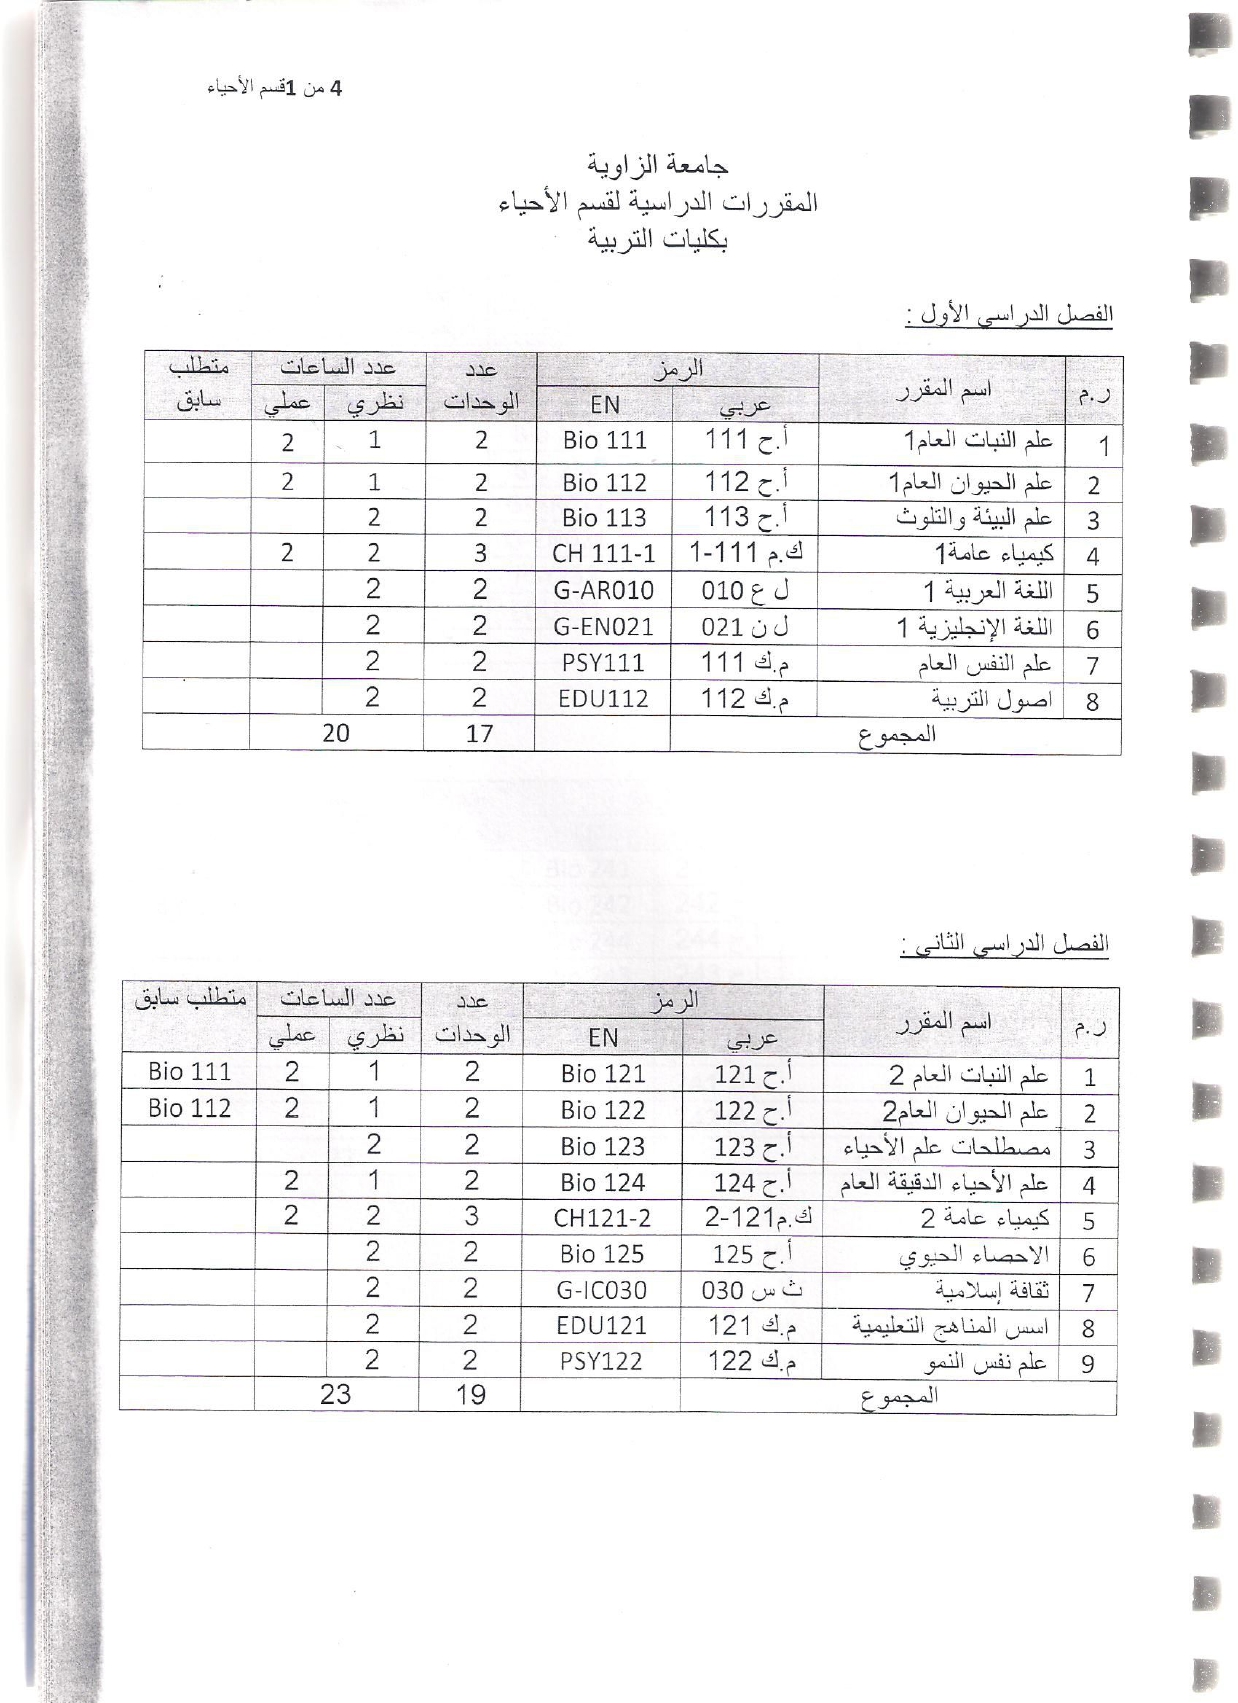 4 من 1قسم الأحياء
جامعة الزاوية
المقررات الدراسية لقسم الأحياء
بكليات التربية
الفصل الدراسي الأول :
ر.م اسم المقرر الرمز عدد الوحدات عدد الساعات متطلب سابق
عربي EN نظري عملي
1 علم النبات العام1 أ.ح 111 Bio 111 2 1 2
2 علم الحيوان العام1 أ.ح 112 Bio 112 2 1 2
3 علم البيئة والتلوث أ.ح 113 Bio 113 2 2
4 كيمياء عامة1 ك.م 111-1 CH 111-1 3 2 2
5 اللغة العربية 1 ل ع 010 G-AR010 2 2
6 اللغة الإنجليزية 1 ل ن 021 G-EN021 2 2
7 علم النفس العام م.ك 111 PSY111 2 2
8 اصول التربية م.ك 112 EDU112 2 2
المجموع 17 20
الفصل الدراسي الثاني :
ر.م اسم المقرر الرمز عدد الوحدات عدد الساعات متطلب سابق
عربي EN نظري عملي
1 علم النبات العام 2 أ.ح 121 Bio 121 2 1 2 Bio 111
2 علم الحيوان العام2 أ.ح 122 Bio 122 2 1 2 Bio 112
3 مصطلحات علم الأحياء أ.ح 123 Bio 123 2 2
4 علم الأحياء الدقيقة العام أ.ح 124 Bio 124 2 1 2
5 كيمياء عامة 2 ك.م121-2 CH121-2 3 2 2
6 الاحصاء الحيوي أ.ح 125 Bio 125 2 2
7 ثقافة إسلامية ث س 030 G-IC030 2 2
8 اسس المناهج التعليمية م.ك 121 EDU121 2 2
9 علم نفس النمو م.ك 122 PSY122 2 2
المجموع 19 23